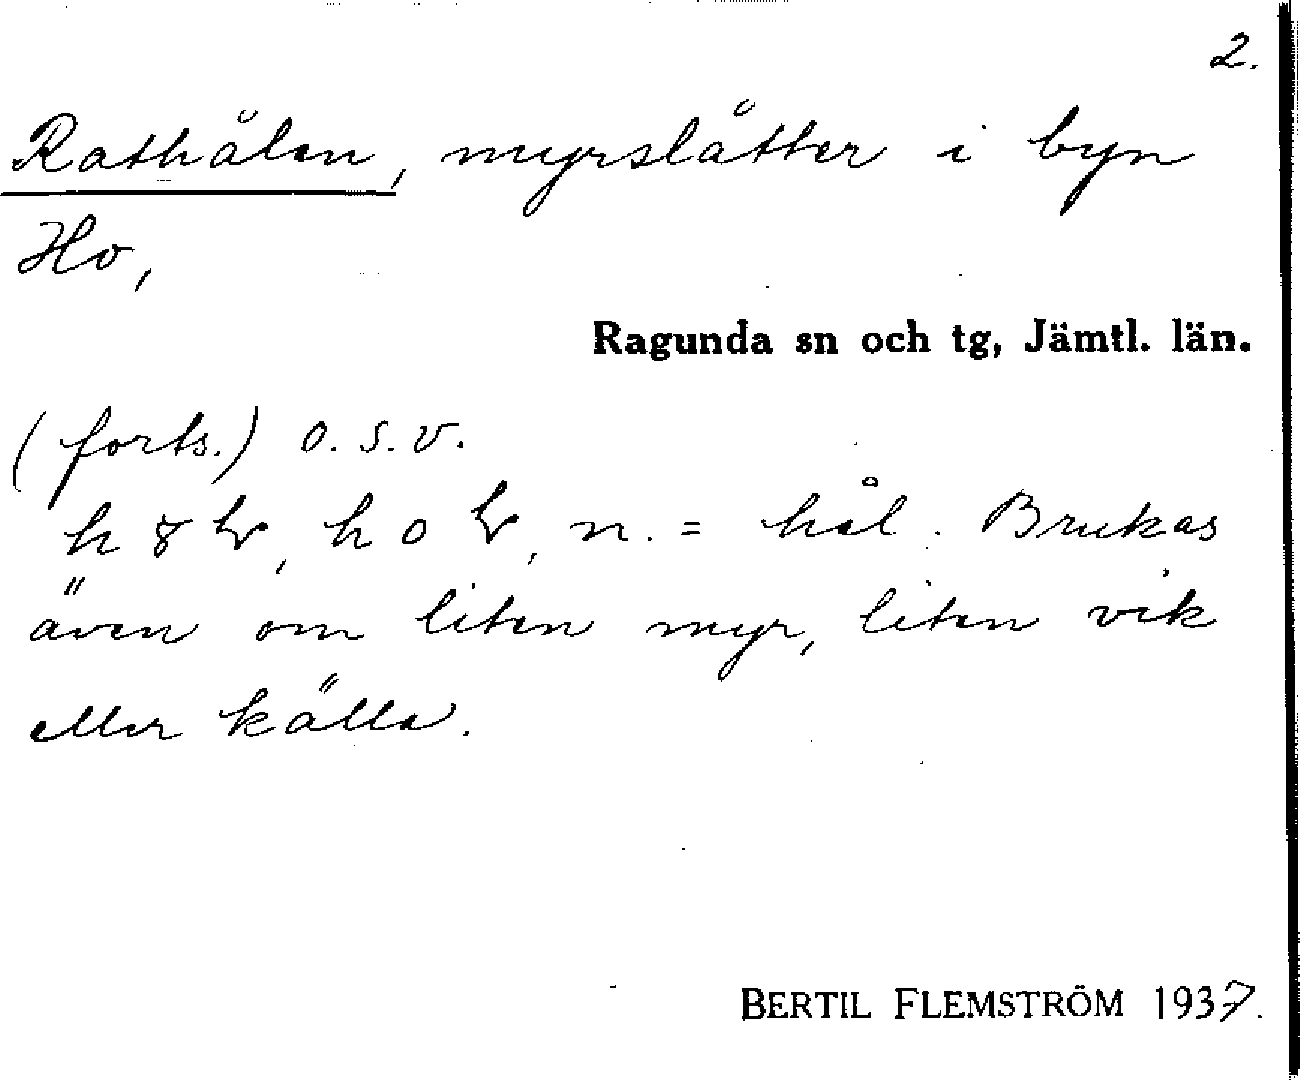 2.
Rathålen, myrslåtter i byn
Ho,
Ragunda sn och tg, Jämtl. län.
(forts.) o.s.v.
n. = hål. Brukas
även om liten myr, liten vik
eller källa.
BERTIL FLEMSTRÖM 1937.